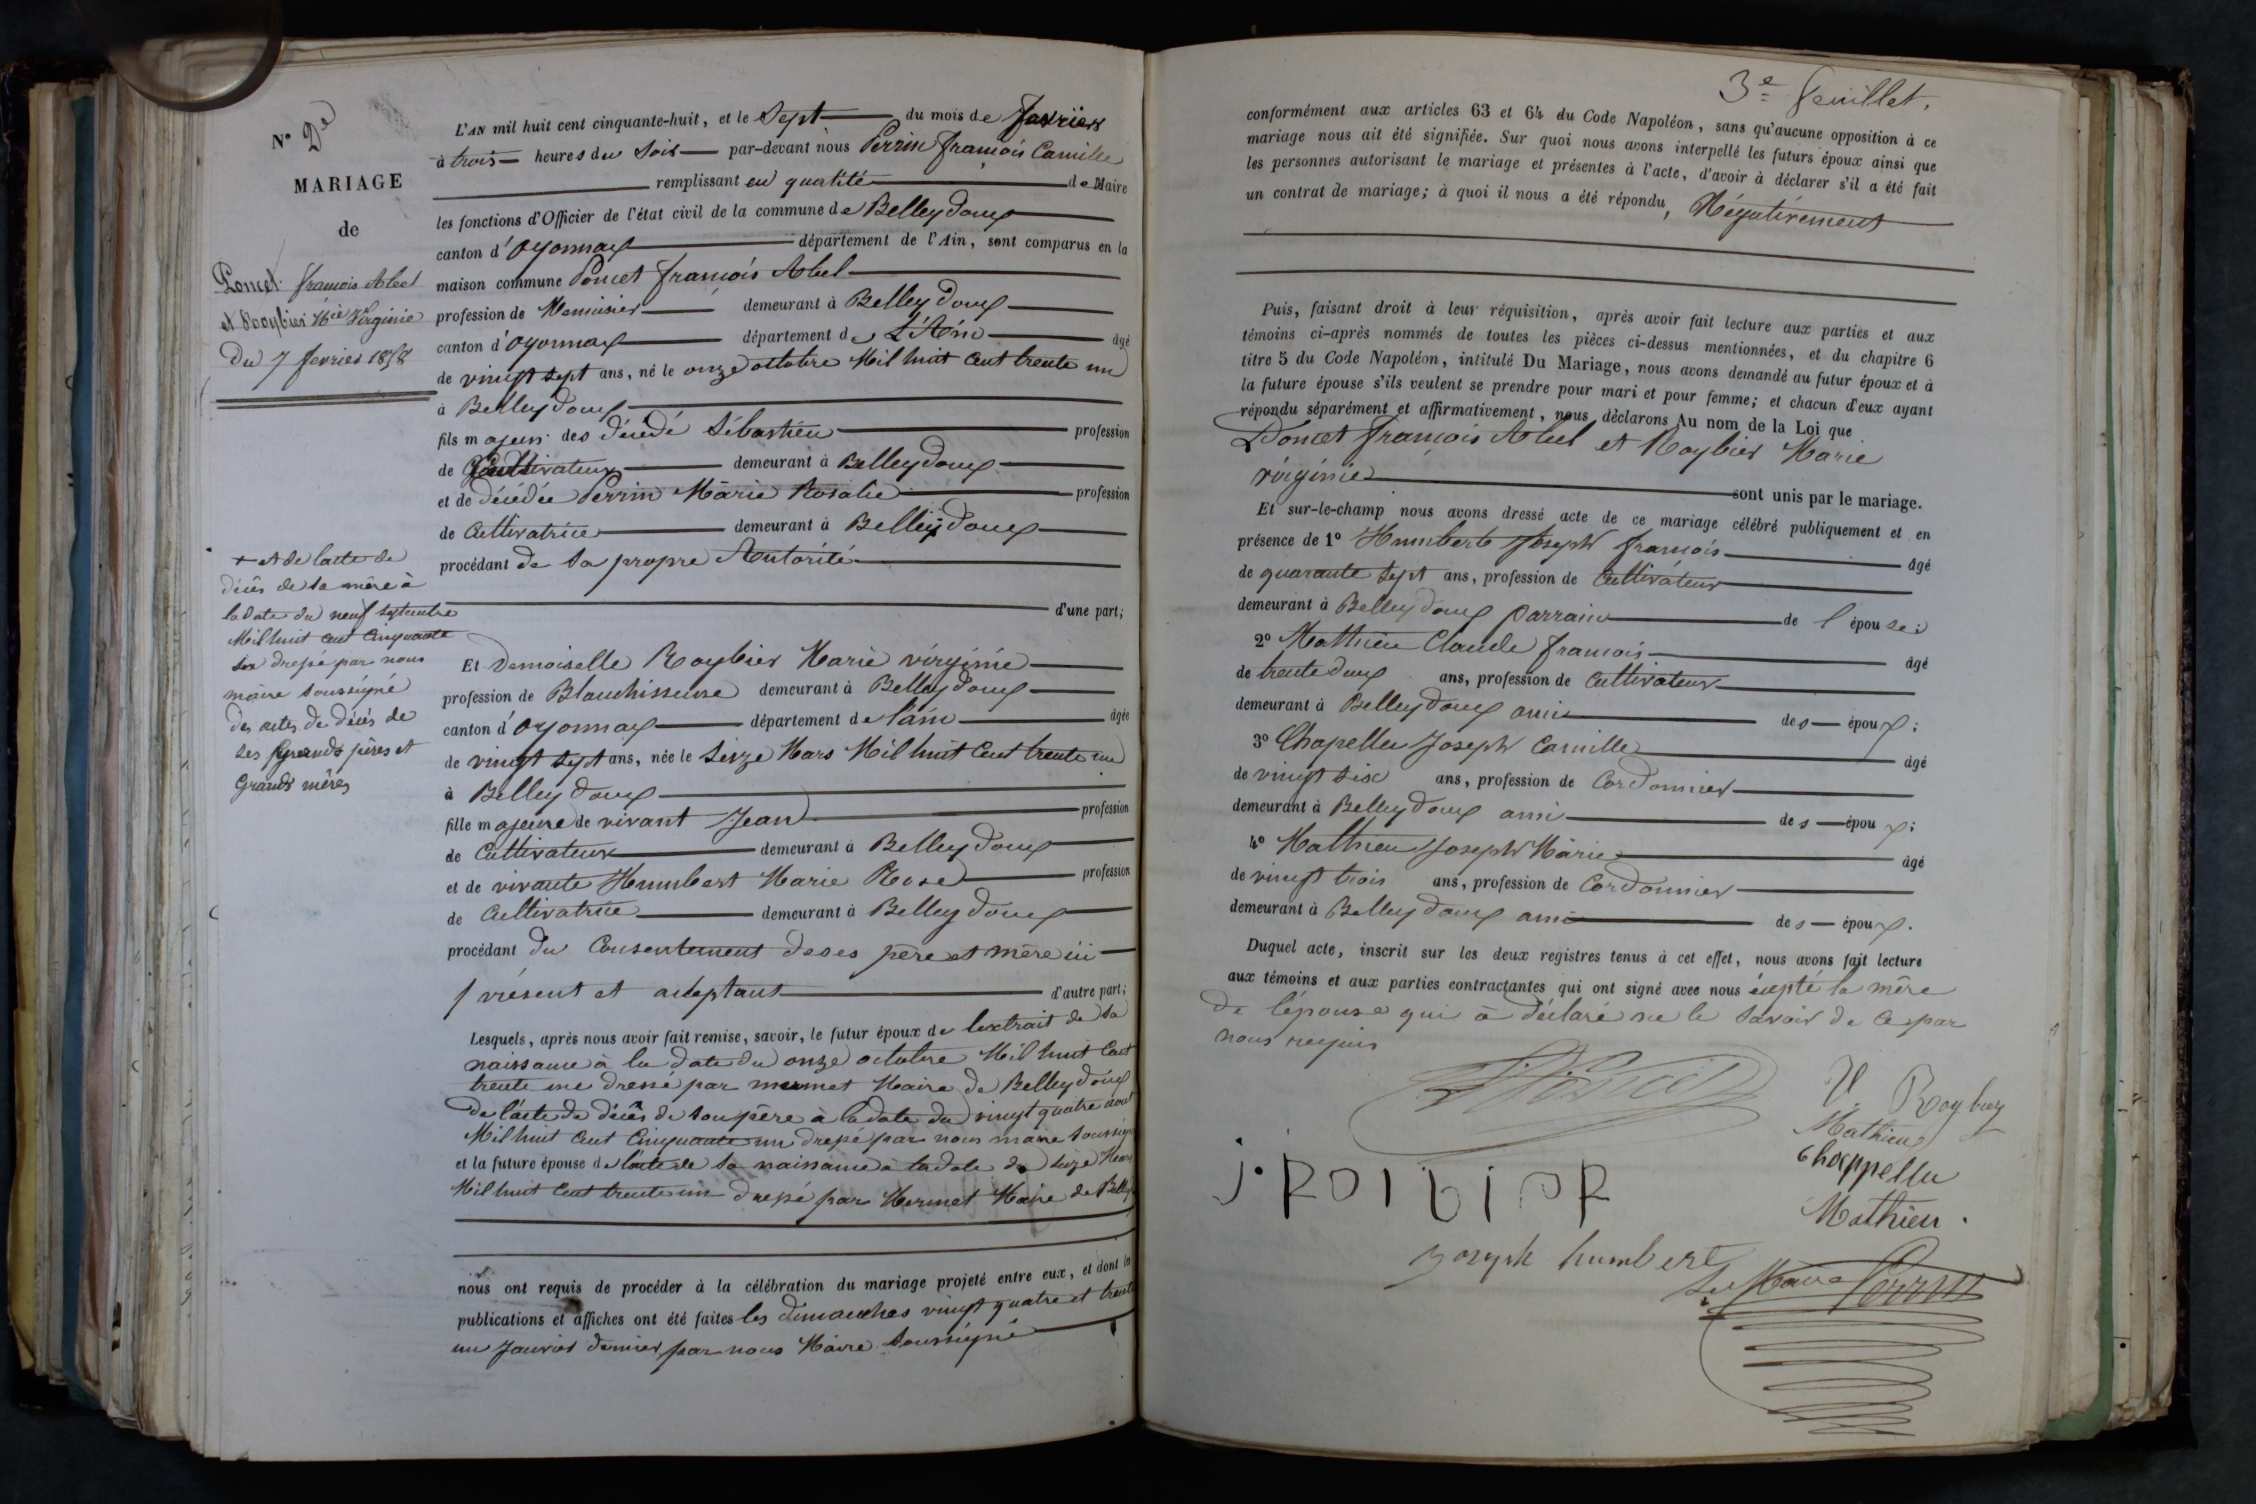 N° 2e
MARIAGE
de
Poncet françois Abel
et Roybier Mie Virginie
Du 7 fevrier 1858
L'AN mil huit cent cinquante-huit, et le Sept du mois de fevrier
à trois heures du Soir par-devant nous Perrin françois Camille
remplissant en qualité de Maire
les fonctions d'Officier de l'état civil de la commune de Belleydoux
canton d'Oyonnax département de l'Ain, sont comparus en la
maison commune Poncet françois Abel
profession de Menuisier demeurant à Belleydoux
canton d'Oyonnax département de L'Ain âgé
de vingt sept ans, né le onze octobre Mil huit Cent trente un
à Belleydoux
fils majeur des décédé Sébastien profession
de Cultivateur demeurant à Belleydoux
et de décédée Perrin Marie Rosalie profession
de Cultivatrice demeurant à Belleydoux
procédant de sa propre Autorité
d'une part;
+ et de lacte de
décès de sa mère à
la date du neuf septembre
Mil huit cent cinquante
six drepé par nous
maire soussigné
des actes de décès de
ses grands pères et
Grands mères
Et Demoiselle Roybier Marie virginie
profession de Blanchisseuse demeurant à Belleydoux
canton d'Oyonnax département de l'ain âgée
de vingt sept ans, née le Seize Mars Mil huit Cent trente un
à Belleydoux
fille majeure de vivant Jean profession
de Cultivateur demeurant à Belleydoux
et de vivante Humbert Marie Rose profession
de Cultivatrice demeurant à Belleydoux
procédant du Consentement de ses père et mère ici
présent et acceptant d'autre part;
Lesquels, après nous avoir fait remise, savoir, le futur époux de lextrait de sa
naissance à la date du onze octobre Mil huit Cent
trente un dressé par mermet Maire de Belleydoux
de l'acte de décès de son père à la date du vingt quatre aout
Mil huit Cent Cinquante un drepé par nous maire soussigné
et la future épouse de lacte de sa naissance à la date du seize Mars
Mil huit Cent trente un drepé par Mermet Maire de Belley
nous ont requis de procéder à la célébration du mariage projeté entre eux, et dont les
publications et affiches ont été faites les dimanches vingt quatre et trente
un Janvier dernier par nous Maire soussigné
3e feuillet.
conformément aux articles 63 et 64 du Code Napoléon, sans qu'aucune opposition à ce
mariage nous ait été signifiée. Sur quoi nous avons interpellé les futurs époux ainsi que
les personnes autorisant le mariage et présentes à l'acte, d'avoir à déclarer s'il a été fait
un contrat de mariage; à quoi il nous a été répondu, Négativement
Puis, faisant droit à leur réquisition, après avoir fait lecture aux parties et aux
témoins ci-après nommés de toutes les pièces ci-dessus mentionnées, et du chapitre 6
titre 5 du Code Napoléon, intitulé Du Mariage, nous avons demandé au futur époux et à
la future épouse s'ils veulent se prendre pour mari et pour femme; et chacun d'eux ayant
répondu séparément et affirmativement, nous déclarons Au nom de la Loi que
Poncet françois Abel et Roybier Marie
virginie sont unis par le mariage.
Et sur-le-champ nous avons dressé acte de ce mariage célébré publiquement et en
présence de 1° Humberb Joseph françois âgé
de quarante sept ans, profession de Cultivateur
demeurant à Belleydoux parrain de l épouse;
2° Mathieu Claude françois âgé
de trente deux ans, profession de Cultivateur
demeurant à Belleydoux ami des époux;
3° Chapellu Joseph Camille âgé
de vingt six ans, profession de Cordonnier
demeurant à Belleydoux ami des époux;
4° Mathieu Joseph Marie âgé
de vingt trois ans, profession de Cordonnier
demeurant à Belleydoux ami des époux.
Duquel acte, inscrit sur les deux registres tenus à cet effet, nous avons fait lecture
aux témoins et aux parties contractantes qui ont signé avec nous excepté la mère
de l'épouse qui à déclaré ne le savoir de ce par
nous requis
V. Roybier
Mathieu
Chappellu
Mathieu.
j. ROIBIER
Joseph humbert
Le Maire Perrin